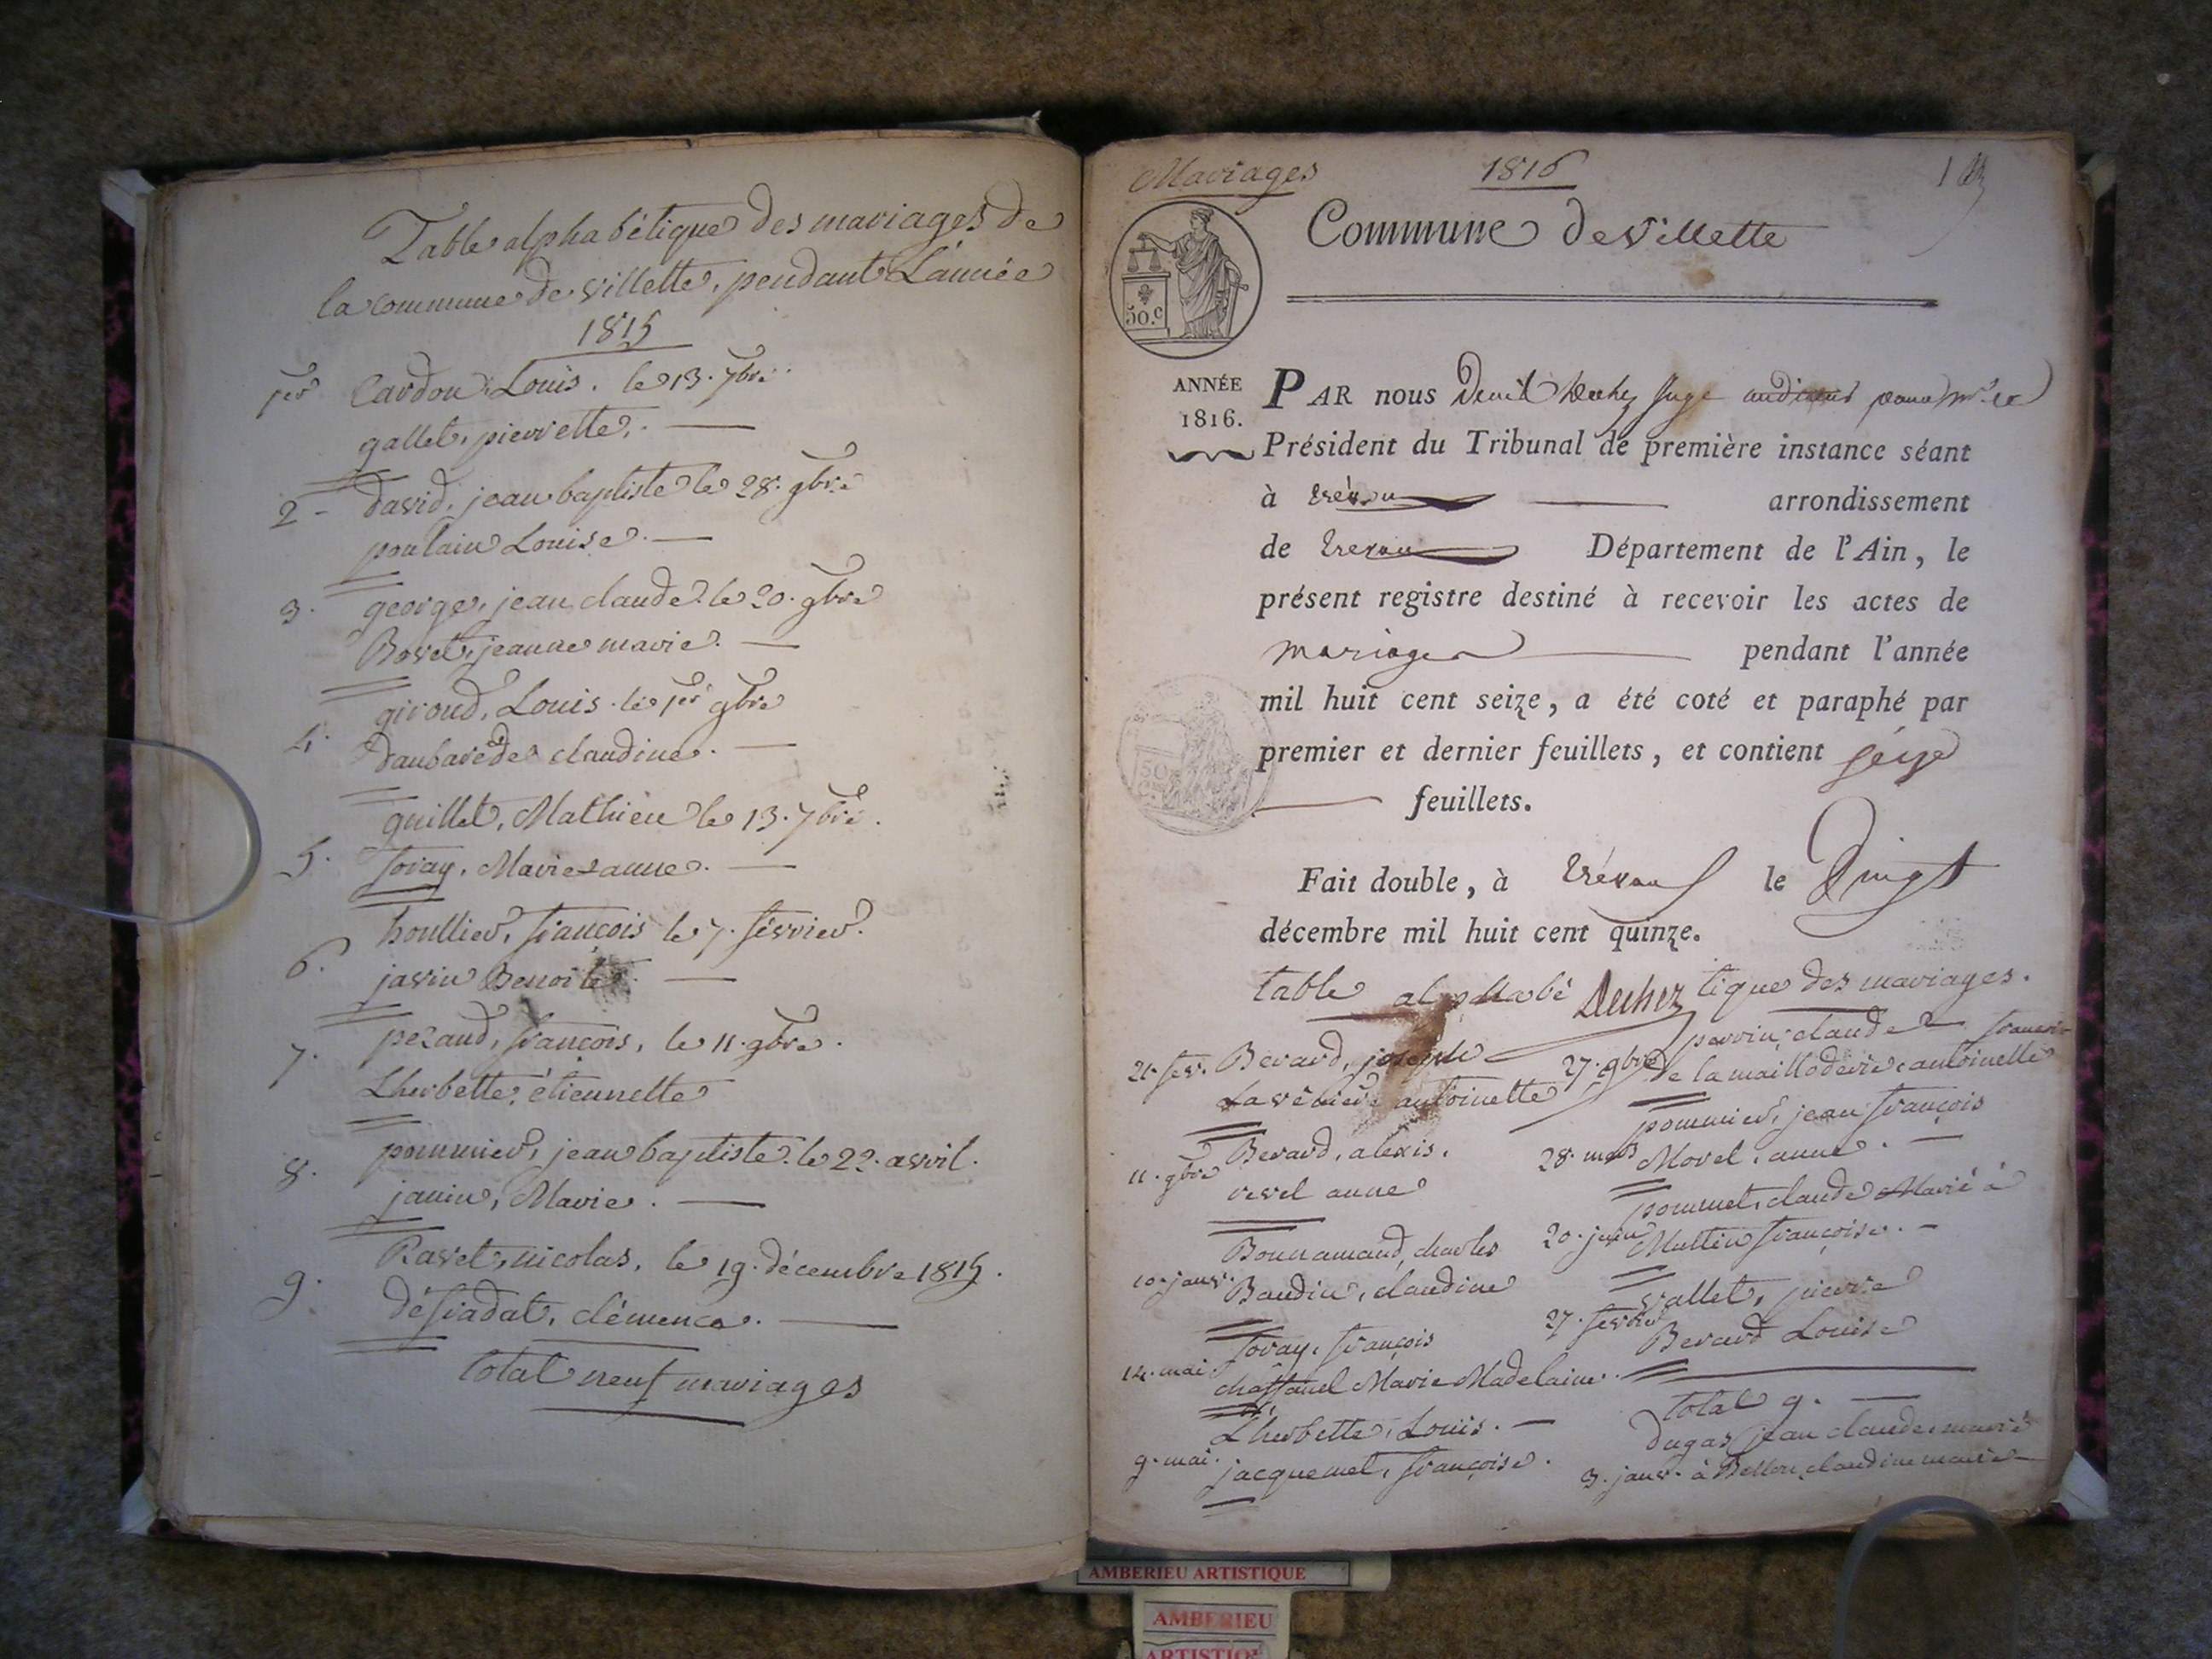 Table alphabétique des mariages de
la commune de villette, pendant L'année
1815
1er Cardon, Louis. le 13. 7bre.
gallet, pierrette. —
2 - david, jean baptiste le 28. 9bre
poulain Louise. —
3. george, jean claude. le 20. 9bre
Bovet, jeanne marie. —
giroud, Louis. le 1er 9bre
4. daubarede claudine. —
guillet, Mathieu le 13. 7bre.
5. foray, Marie anne. —
houllier, françois le 7. février.
6. javin Benoite. —
pezaud, françois, le 11. 9bre.
7. Lherbette, étiennette
pommier, jean baptiste. le 22. avril.
8. janin, Marie. —
Ravet, nicolas, le 19. décembre 1815.
9. clémence. —
total neuf mariages
Mariages 1816 1
Commune de Villette
50.c
ANNÉE
1816.
PAR nous Juge auditeur
Président du Tribunal de première instance séant
à trévoux — arrondissement
de trevoux Département de l'Ain, le
présent registre destiné à recevoir les actes de
mariages — pendant l'année
mil huit cent seize, a été coté et paraphé par
premier et dernier feuillets, et contient seize
— feuillets.
Fait double, à trévoux le Vingt
décembre mil huit cent quinze.
table alphabétique des mariages.
21. fev. Berard, joseph
antoinette
11. 9bre Berard, alexis.
revel anne
Bonnamand, charles
10. janv. Baudin, claudine
foray, françois
14. mai Marie Madelaine.
Lherbette, Louis. —
9. mai. jacquemet, françoise.
perrin, claude
27. 9bre de la antoinette
pommier, jean françois
28. mars Morel, anne. —
pommet, claude Marié à
20. juin françoise. —
vallet, pierre
27. fevrier Berard Louise
total 9. —
dugas jean claude, marié
3. janv. à claudine marie —
AMBERIEU ARTISTIQUE
AMBERIEU
ARTISTIQUE